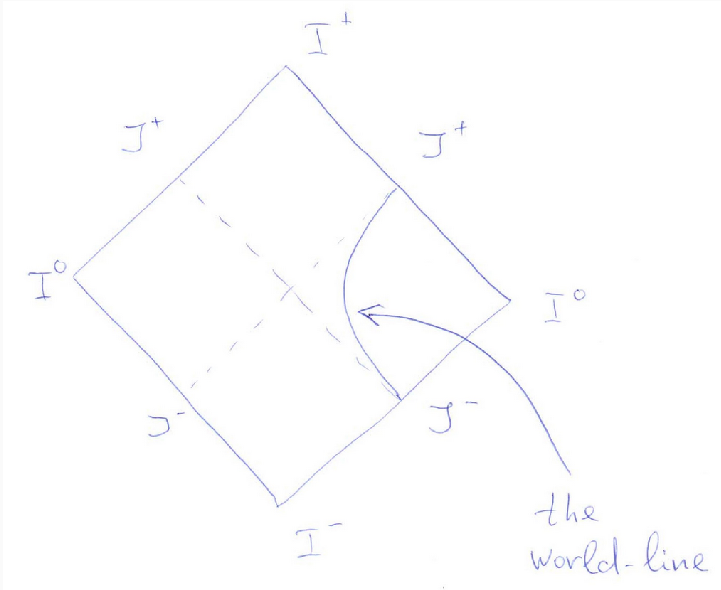 I⁺
J⁺
J⁺
I⁰
I⁰
J⁻
J⁻
I⁻
the
world-line